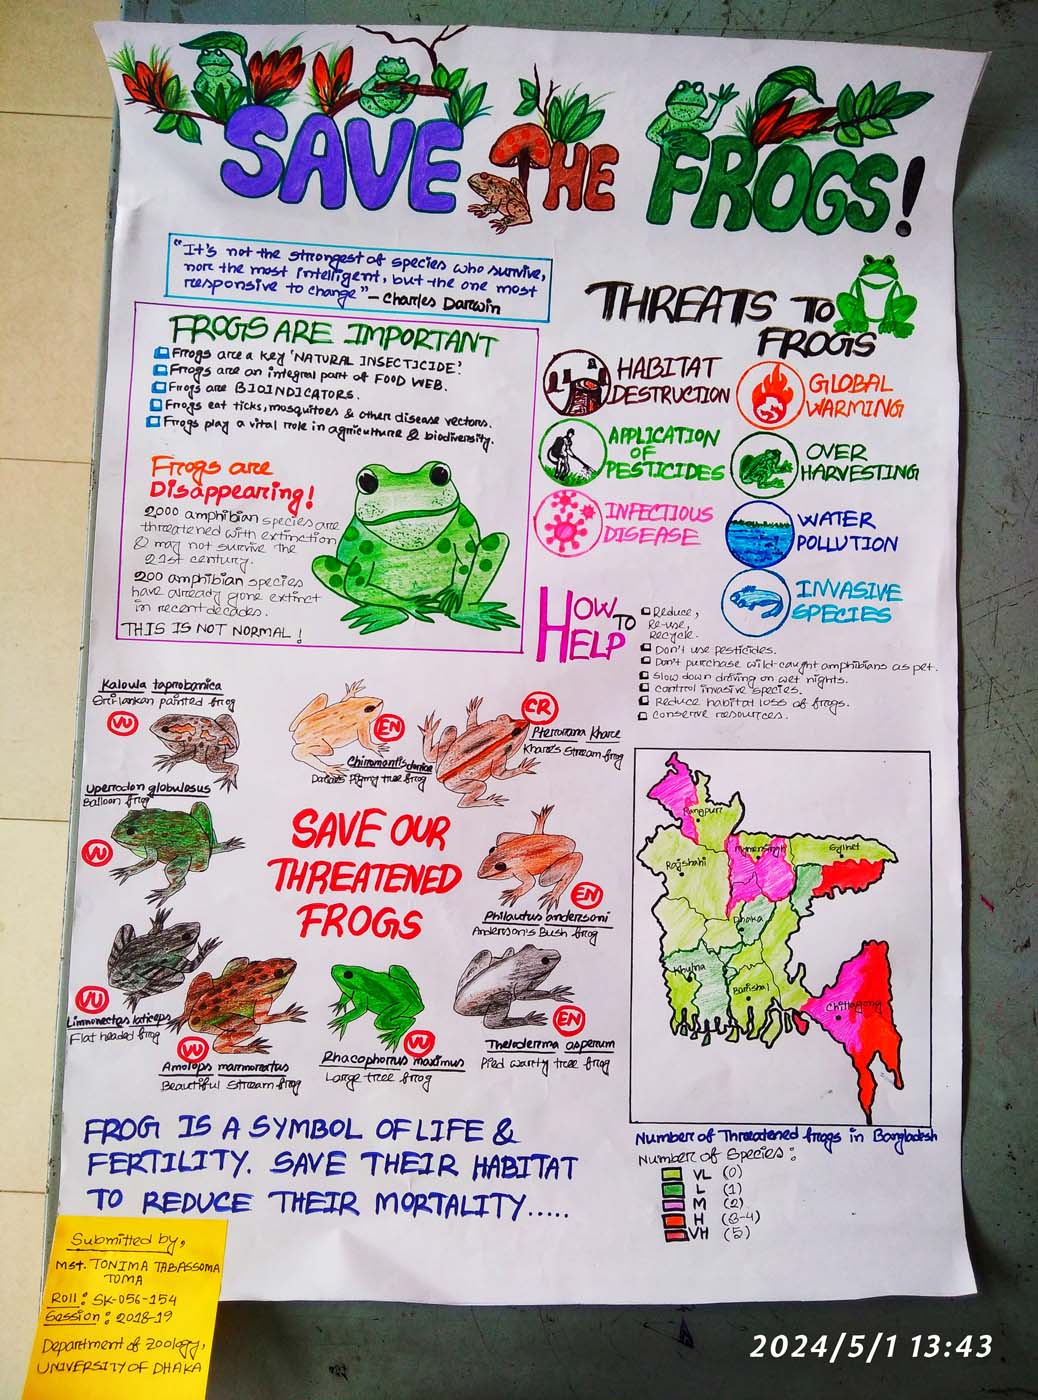 SAVE THE FROGS!
"It's not the strongest of species who survive,
nor the most intelligent, but the one most
responsive to change" – Charles Darwin
FROGS ARE IMPORTANT
Frogs are a key 'NATURAL INSECTICIDE'.
Frogs are an integral part of FOOD WEB.
Frogs are BIOINDICATORS.
Frogs eat ticks, mosquitoes & other disease vectors.
Frogs play a vital role in agriculture & biodiversity.
Frogs are
Disappearing!
2,000 amphibian species are
threatened with extinction
& may not survive the
21st century.
200 amphibian species
have already gone extinct
in recent decades.
THIS IS NOT NORMAL!
THREATS TO
FROGS
HABITAT
DESTRUCTION
GLOBAL
WARMING
APPLICATION
OF
PESTICIDES
OVER
HARVESTING
INFECTIOUS
DISEASE
WATER
POLLUTION
INVASIVE
SPECIES
HOW
TO
HELP
Reduce,
Re-use,
Recycle.
Don't use pesticides.
Don't purchase wild-caught amphibians as pet.
Slow down driving on wet nights.
control invasive species.
reduce habitat loss of frogs.
conserve resources.
Kaloula taprobanica
Sri lankan painted frog
VU
EN
Chiromantis doriae
Doria's Pigmy tree frog
CR
Pterorana khare
Khare's Stream frog
Uperodon globulosus
Balloon frog
VU
SAVE OUR
THREATENED
FROGS
EN
Philautus andersoni
Anderson's Bush frog
VU
Limnonectes laticeps
Flat headed frog
VU
Amolops marmoratus
Beautiful Stream frog
VU
Rhacophorus maximus
Large tree frog
EN
Theloderma asperum
Pied warty tree frog
Rangpur
Rajshahi
Mymensingh
Sylhet
Dhaka
Khulna
Barishal
Chittagong
Number of Threatened frogs in Bangladesh
Number of Species:
VL (0)
L (1)
M (2)
H (3-4)
VH (5)
FROG IS A SYMBOL OF LIFE &
FERTILITY. SAVE THEIR HABITAT
TO REDUCE THEIR MORTALITY.....
Submitted by,
Mst. TONIMA TABASSOMA
TOMA
Roll: SK-056-154
Session: 2018-19
Department of Zoology,
UNIVERSITY OF DHAKA
2024/5/1 13:43